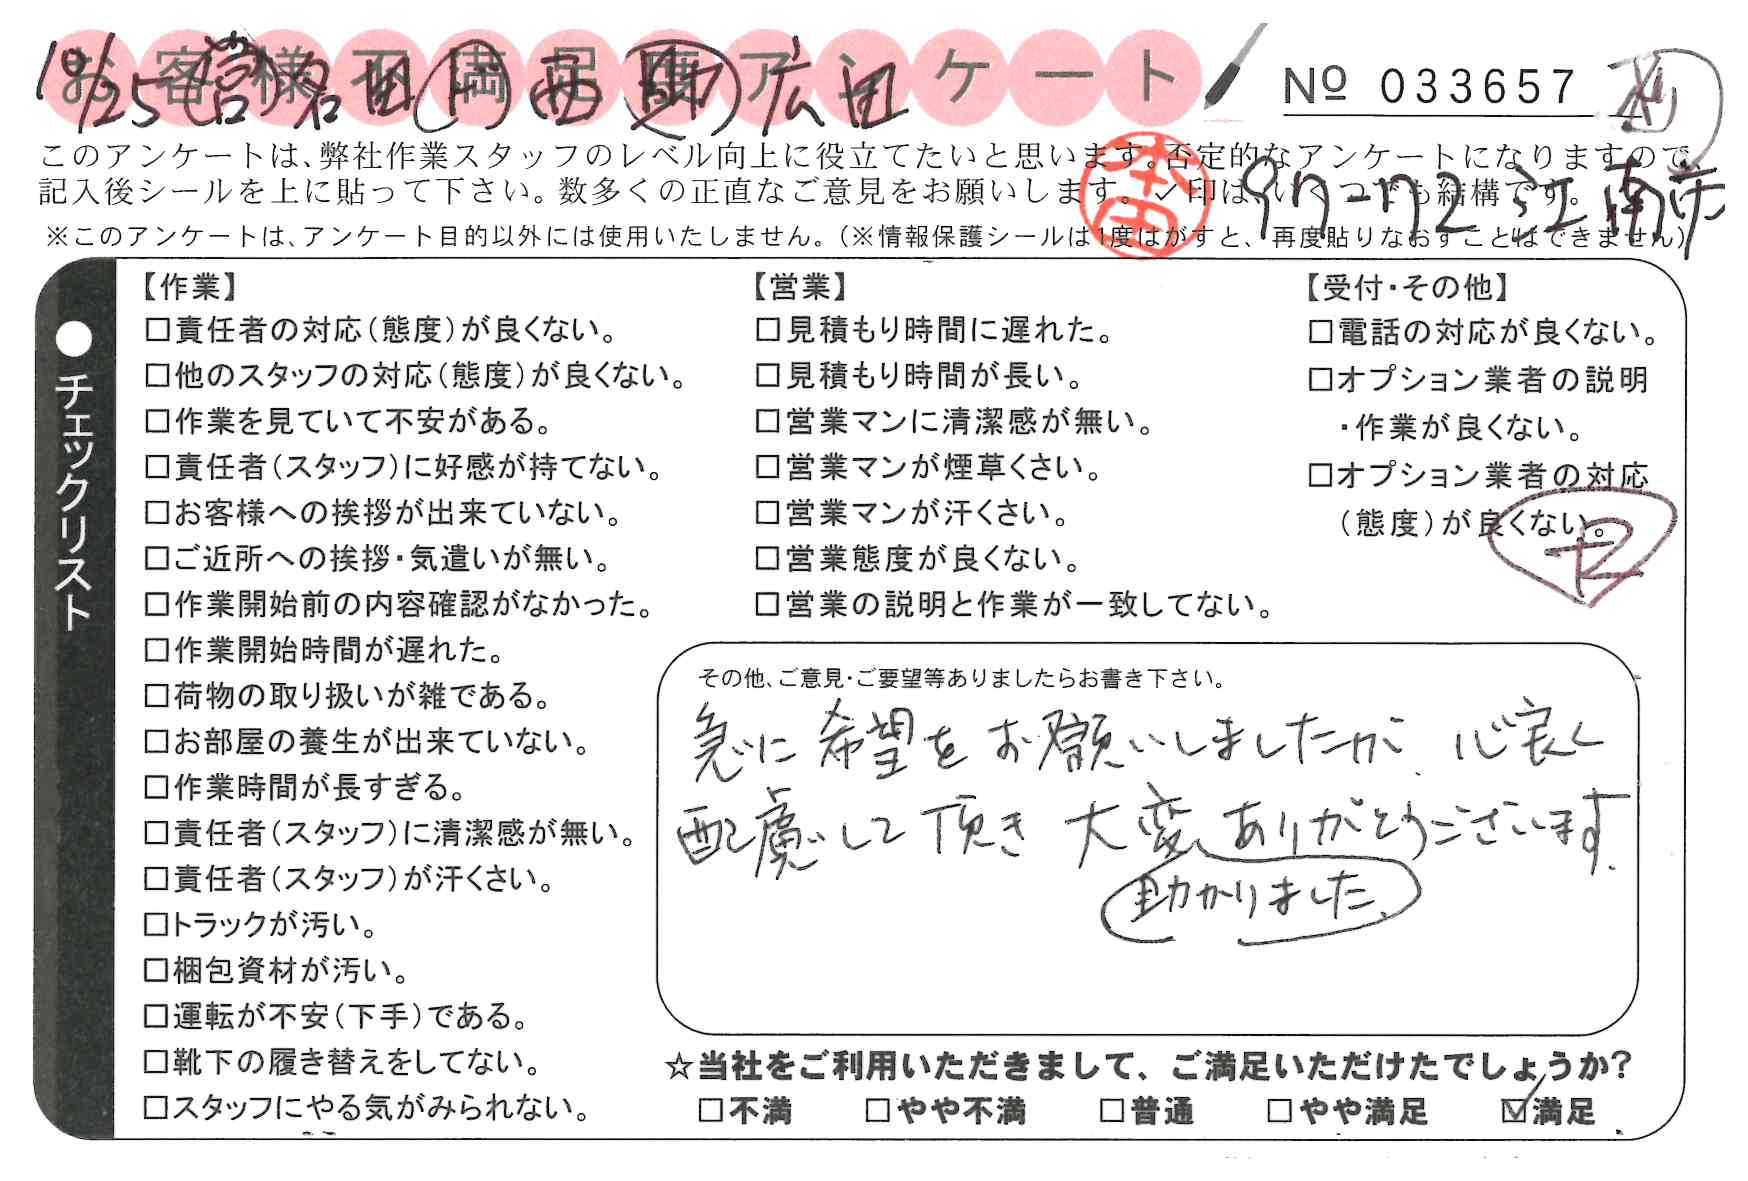 お客様不満足度アンケート
10/25 営 岩田 円 西 助 広田
No 033657
このアンケートは、弊社作業スタッフのレベル向上に役立てたいと思います。否定的なアンケートになりますので
記入後シールを上に貼って下さい。数多くの正直なご意見をお願いします。✓印は、いくつでも結構です。
本田
江南市
※このアンケートは、アンケート目的以外には使用いたしません。（※情報保護シールは1度はがすと、再度貼りなおすことはできません）
●チェックリスト
【作業】
□責任者の対応（態度）が良くない。
□他のスタッフの対応（態度）が良くない。
□作業を見ていて不安がある。
□責任者（スタッフ）に好感が持てない。
□お客様への挨拶が出来ていない。
□ご近所への挨拶・気遣いが無い。
□作業開始前の内容確認がなかった。
□作業開始時間が遅れた。
□荷物の取り扱いが雑である。
□お部屋の養生が出来ていない。
□作業時間が長すぎる。
□責任者（スタッフ）に清潔感が無い。
□責任者（スタッフ）が汗くさい。
□トラックが汚い。
□梱包資材が汚い。
□運転が不安（下手）である。
□靴下の履き替えをしてない。
□スタッフにやる気がみられない。
【営業】
□見積もり時間に遅れた。
□見積もり時間が長い。
□営業マンに清潔感が無い。
□営業マンが煙草くさい。
□営業マンが汗くさい。
□営業態度が良くない。
□営業の説明と作業が一致してない。
【受付・その他】
□電話の対応が良くない。
□オプション業者の説明
・作業が良くない。
□オプション業者の対応
（態度）が良くない。
その他、ご意見・ご要望等ありましたらお書き下さい。
急に希望をお願いしましたが、心良く
配慮して頂き 大変ありがとうございます.
助かりました.
☆当社をご利用いただきまして、ご満足いただけたでしょうか？
□不満 □やや不満 □普通 □やや満足 ☑満足